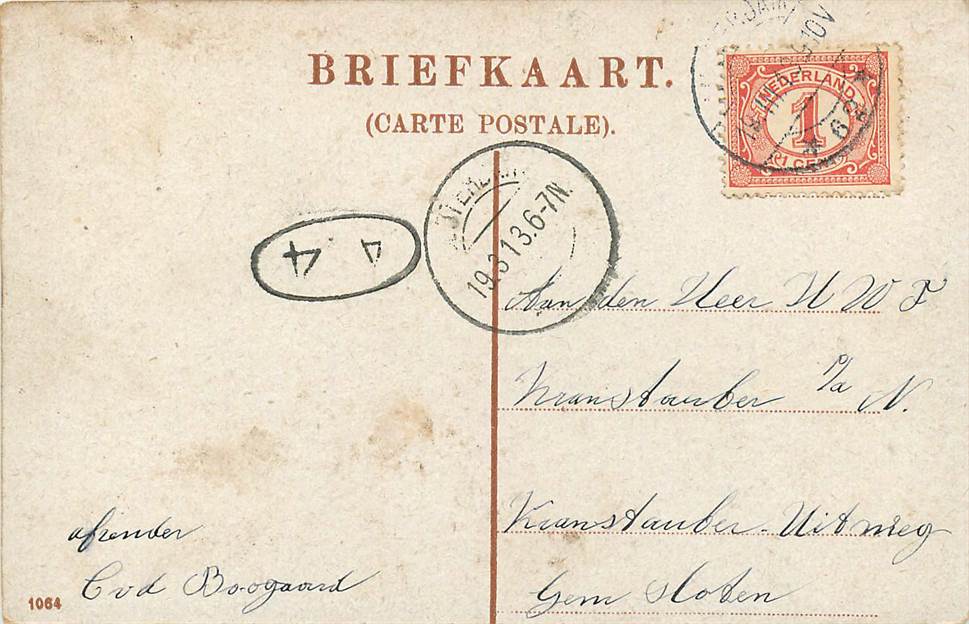 BRIEFKAART.
(CARTE POSTALE).
NEDERLAND
1
1 CENT
19.3 13.6-7N.
4 4
Aan den Heer H W F
Kranstauber p/a N.
Kranstauber-Uitweg
Gem Sloten
afzender
C v d Boogaard
1064